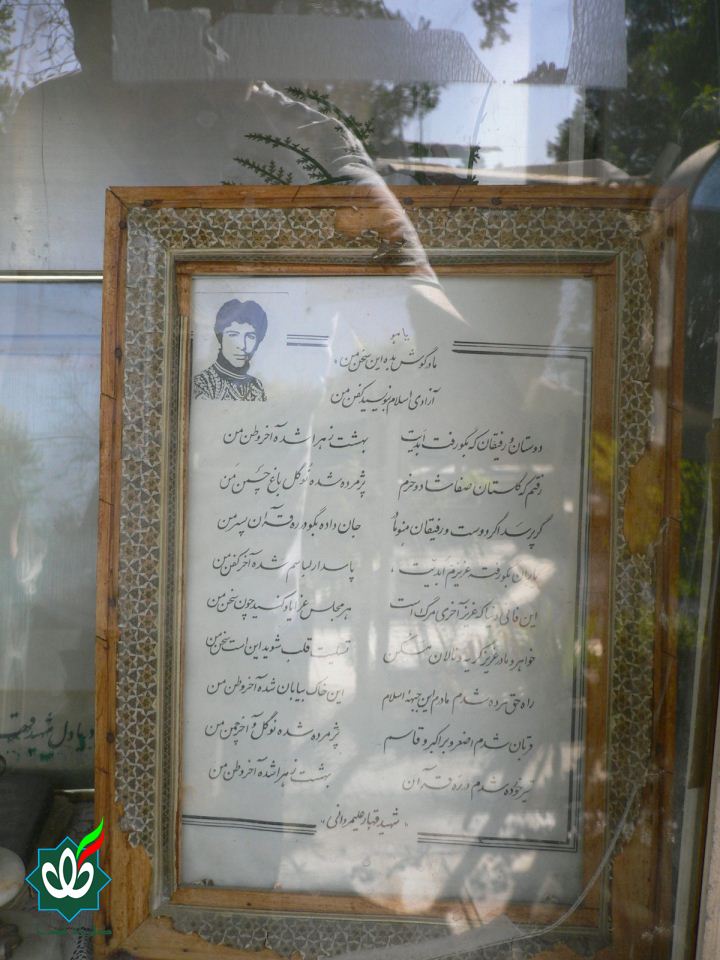 یا هو
مادر گوش بده این سخن من
آزادی اسلام بنویسید کفن من
دوستان و رفیقان که بگو رفت ابدیت بهشت زهرا شده آخر وطن من
رفتم که گلستان صفا شاد و خرم پژمرده شده نوگل باغ چمن من
گر پرسد اگر دوست و رفیقان منو مادر جان داده بگو در ره قرآن پسر من
یاران بگو رفته عزیزم ابدیت، پاسدار لباسم شده آخر کفن من
این فانی دنیا که عزیز آخری مرگ است هر مجلس عزا یاد کنید چون سخن من
خواهر و مادر عزیز گریه و نالان مکن تسلیت قلب شوید این است سخن من
راه حق برده شدم مادرم این جبهه اسلام این خاک بیابان شده آخر وطن من
قربان شدم اصغر و بر اکبر و قاسم پژمرده شده نوگل و آخر چمن من
تیر خورده شدم در ره قرآن بهشت زهرا شده آخر وطن من
"شهید قهار علیمردانی"